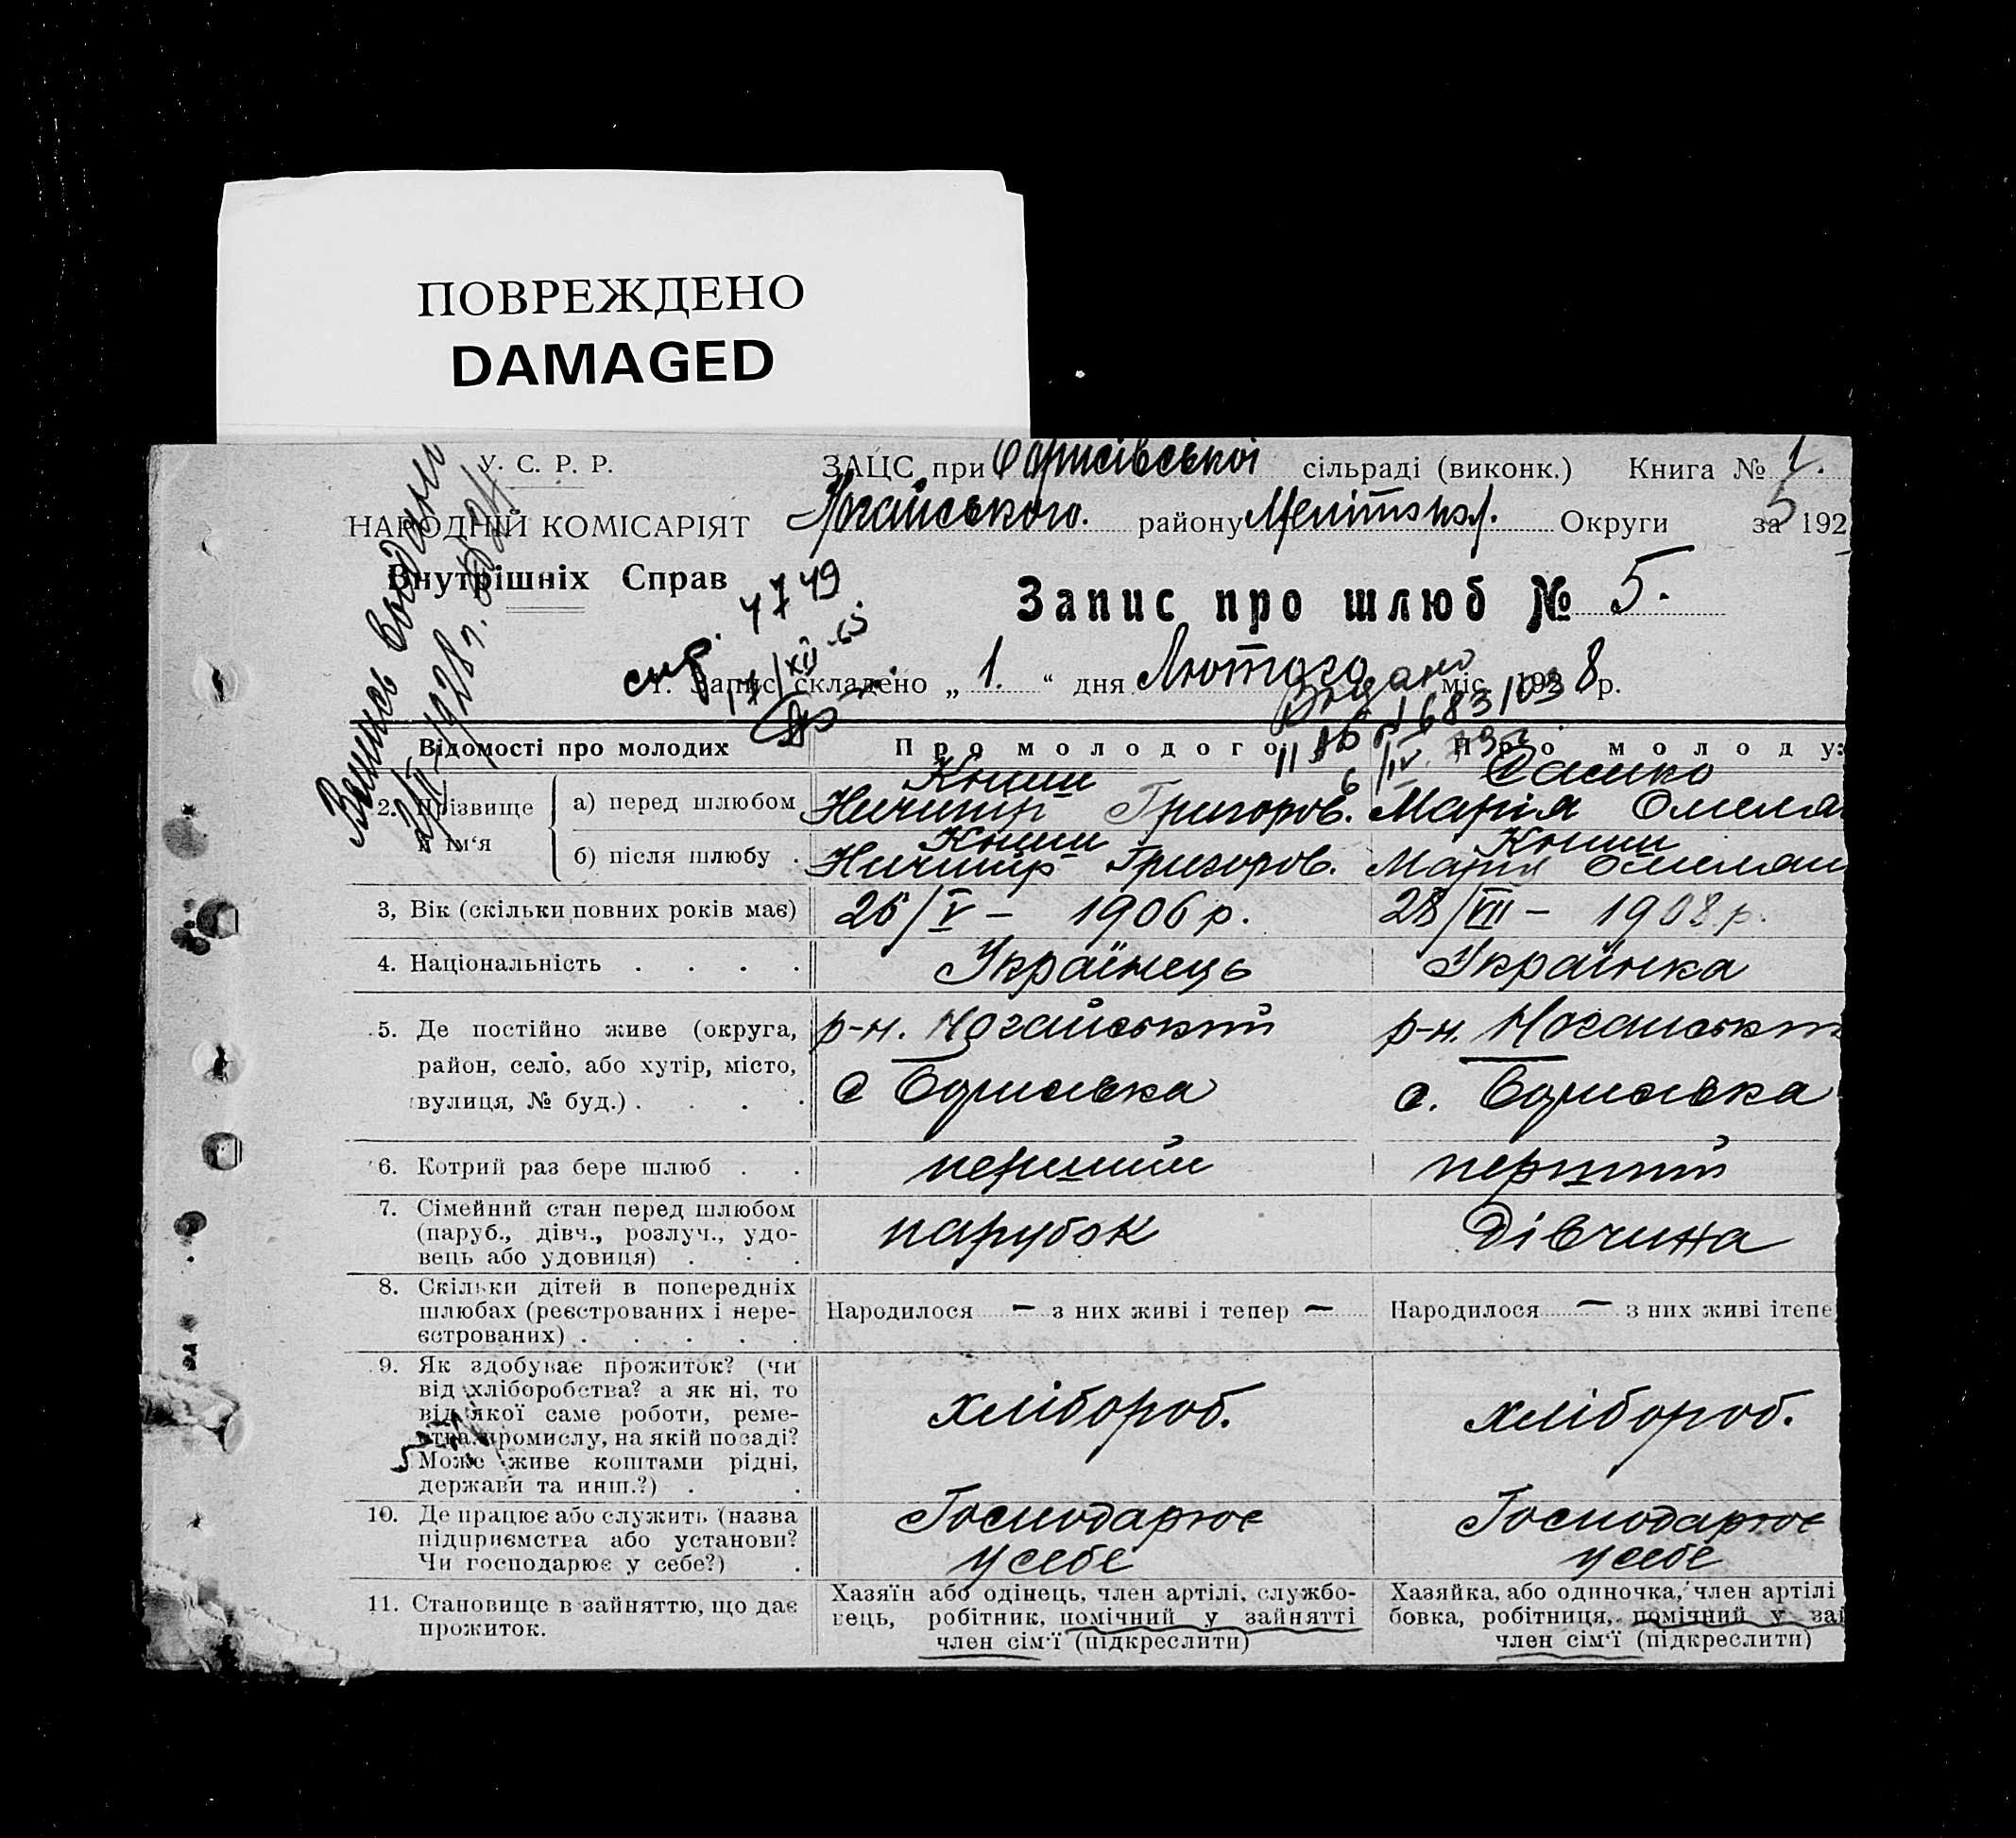 ПОВРЕЖДЕНО
DAMAGED
У. С. Р. Р.
ЗАЦС при Борисівській сільраді (виконк.) Книга № 1.
НАРОДНІЙ КОМІСАРІЯТ
Ногайського району Меліто Округи за 192
5
Внутрішніх Справ
Запис про шлюб № 5.
1. Запис складено „ 1. “ дня Лютого міс. 1928 р.
Відомості про молодих
Про молодого:
Про молоду:
2. Прізвище й ім‘я
а) перед шлюбом
Книш
Ничипір Григоров.
Сашко
Марія Омеля
б) після шлюбу .
Книш
Ничипір Григоров.
Книш
Марія Омелян
3, Вік (скільки повних років має)
26/V – 1906 р.
28/VII – 1908 р.
4. Національність . . . .
Українець
Українка
5. Де постійно живе (округа,
район, село, або хутір, місто,
вулиця, № буд.) . . . .
р-н. Ногайський
с Борисівка
р-н. Ногайськи
с. Борисівка
6. Котрий раз бере шлюб . .
перший
перший
7. Сімейний стан перед шлюбом
(паруб., дівч., розлуч., удо-
вець або удовиця) . . .
парубок
Дівчина
8. Скільки дітей в попередніх
шлюбах (реєстрованих і нере-
єстрованих) . . . . .
Народилося — з них живі і тепер —
Народилося — з них живі ітепе
9. Як здобуває прожиток? (чи
від хліборобства? а як ні, то
від якої саме роботи, реме-
ства, промислу, на якій посаді?
Може живе коштами рідні,
держави та инш.?) . .
хлібороб.
хлібороб.
10. Де працює або служить (назва
підприємства або установи?
Чи господарює у себе?) .
Господарює
у себе
Господарює
у себе
11. Становище в зайняттю, що дає
прожиток.
Хазяїн або одінець, член артілі, службо-
вець, робітник, помічний у зайнятті
член сім‘ї (підкреслити)
Хазяйка, або одиночка, член артілі
бовка, робітниця, помічний у зай
член сім‘ї (підкреслити)